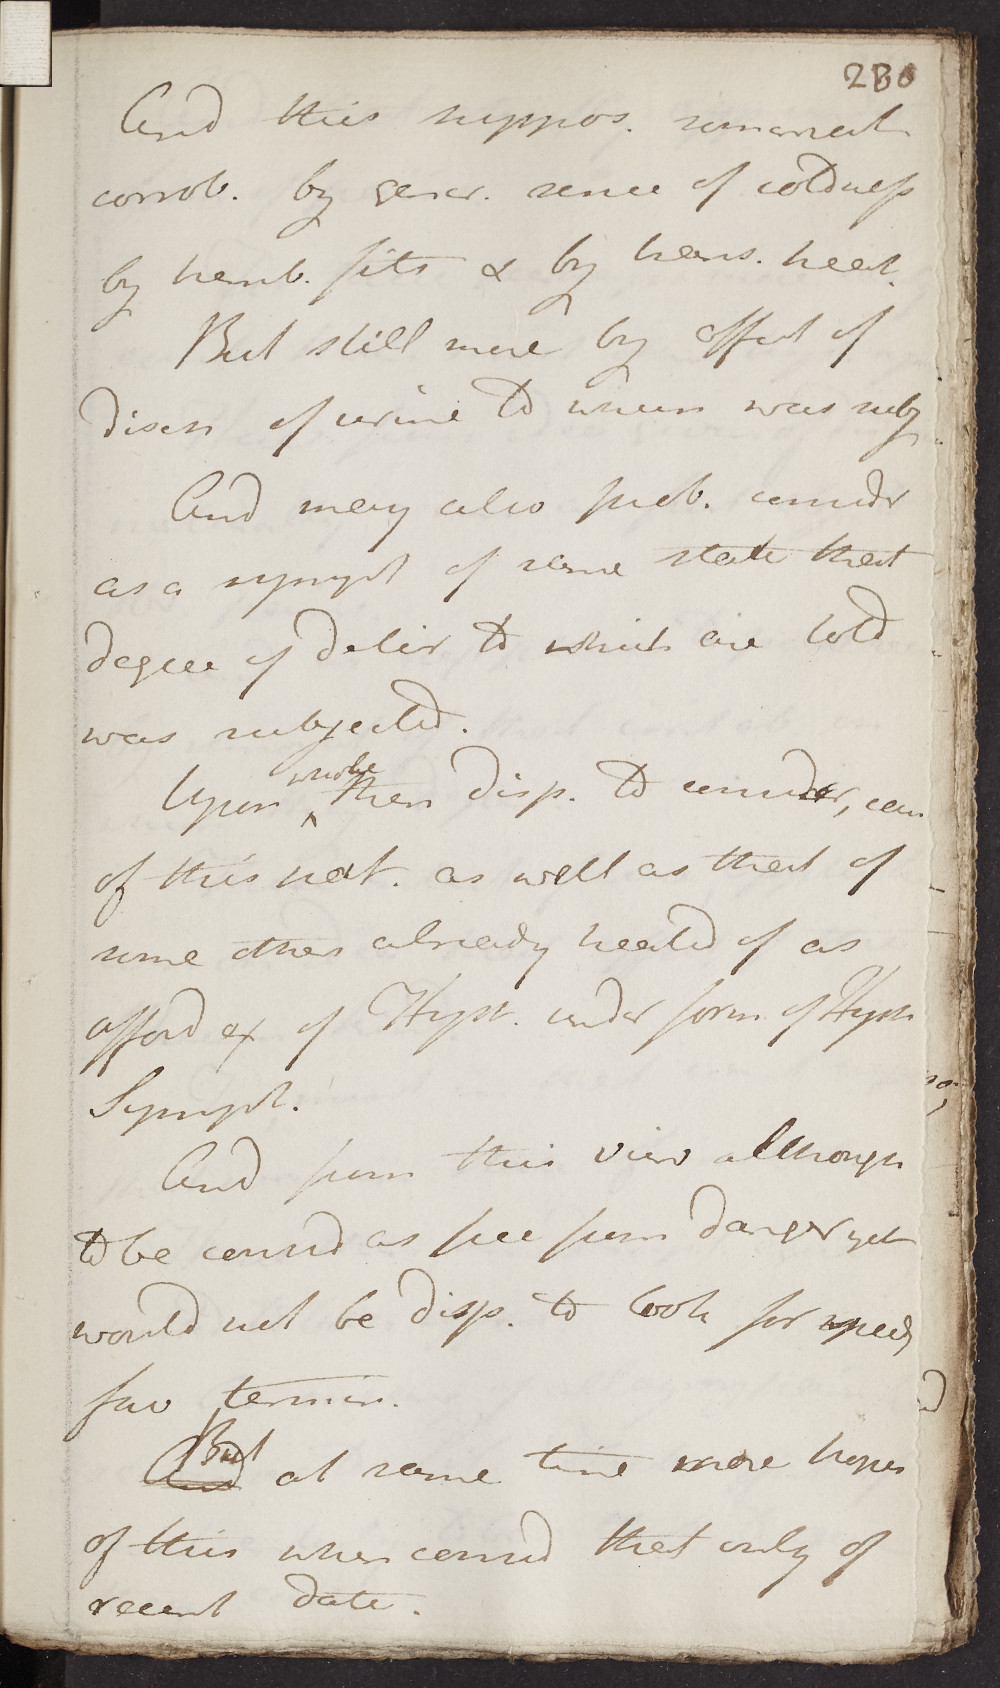 280
And this suppos. somewhat
corrob. by gener. sense of coldness
by tremb. fits & by trans. heat.
But still more by effect of
disch of urine to whom was subj
And may also prob. consider
as a sympt of same state that
degree of delir to which are told
was subjected.
Upon whole then disp. to consider, case
of this nat. as well as that of
some others already treated of as
afford ex of Hyst. under form of Hyst
Sympt.
And from this view although
to be consid as free from danger yet
would not be disp. to look for speedy
fav termin.
And But at same time more hopes
of this when consid that only of
recent date.